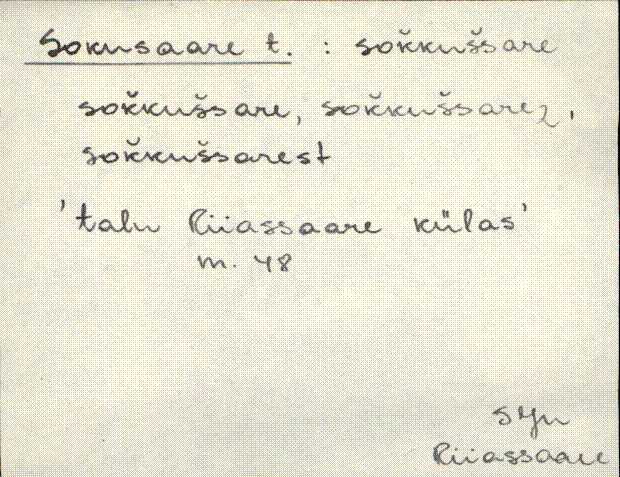 Sokusaare t. : soǩkuš̌sare
soǩkuš̌sare, soǩkuš̌sarez,
soǩkuš̌sarest
'talu Riiassaare külas'
m. 48
SJn
Riiassaare